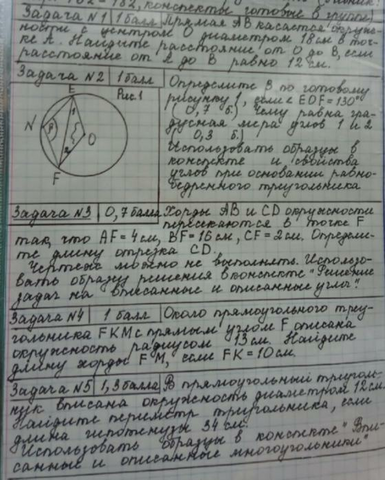 = 182, конспекты готовые в группе)
Задача N1 1 балл Прямая AB касается окруж-
ности с центром O диаметром 18 см в точ-
ке A. Найдите расстояние от O до B, если
расстояние от A до B равно 12 см.
Задача N2 1 балл
Рис.1
E
N
O
F
β
1
2
Определите β по готовому
рисунку 1, если ∠EOF=130°
(0,7 б.) Чему равна гра-
дусная мера углов 1 и 2
0,3 б.)
Использовать образцы в
конспекте и свойства
углов при основании равно-
бедренного треугольника
Задача N3 0,7 балла Хорды AB и CD окружности
пересекаются в точке F
так, что AF=4см, BF=16см, CF=2см. Определи-
те длину отрезка CD.
Чертеж можно не выполнять. Использо-
вать образцы решения в конспекте "Решение
задач на вписанные и описанные углы".
Задача N4 1 балл Около прямоугольного треу-
гольника FKM с прямым углом F описана
окружность радиусом 13см. Найдите
длину хорды FM, если FK=10см.
Задача N5 1,3 балла В прямоугольный треуголь-
ник вписана окружность диаметром 12см.
Найдите периметр тригольника, если
длина гипотенузы 34 см.
Использовать образцы в конспекте "Впи-
санные и описанные многоугольники"